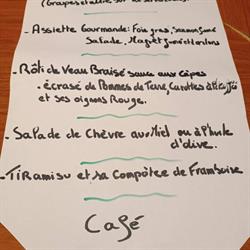 - Assiette Gourmande: Foie gras, Saumon fumé
Salade, Magret fumé
- Rôti de Veau Braisé sauce aux cèpes
- écrasé de Pommes de Terre, Carottes
et ses oignons Rouge.
- Salade de Chèvre au Miel ou à l'huile
d'olive.
- Tiramisu et sa compôtée de Framboise
Café